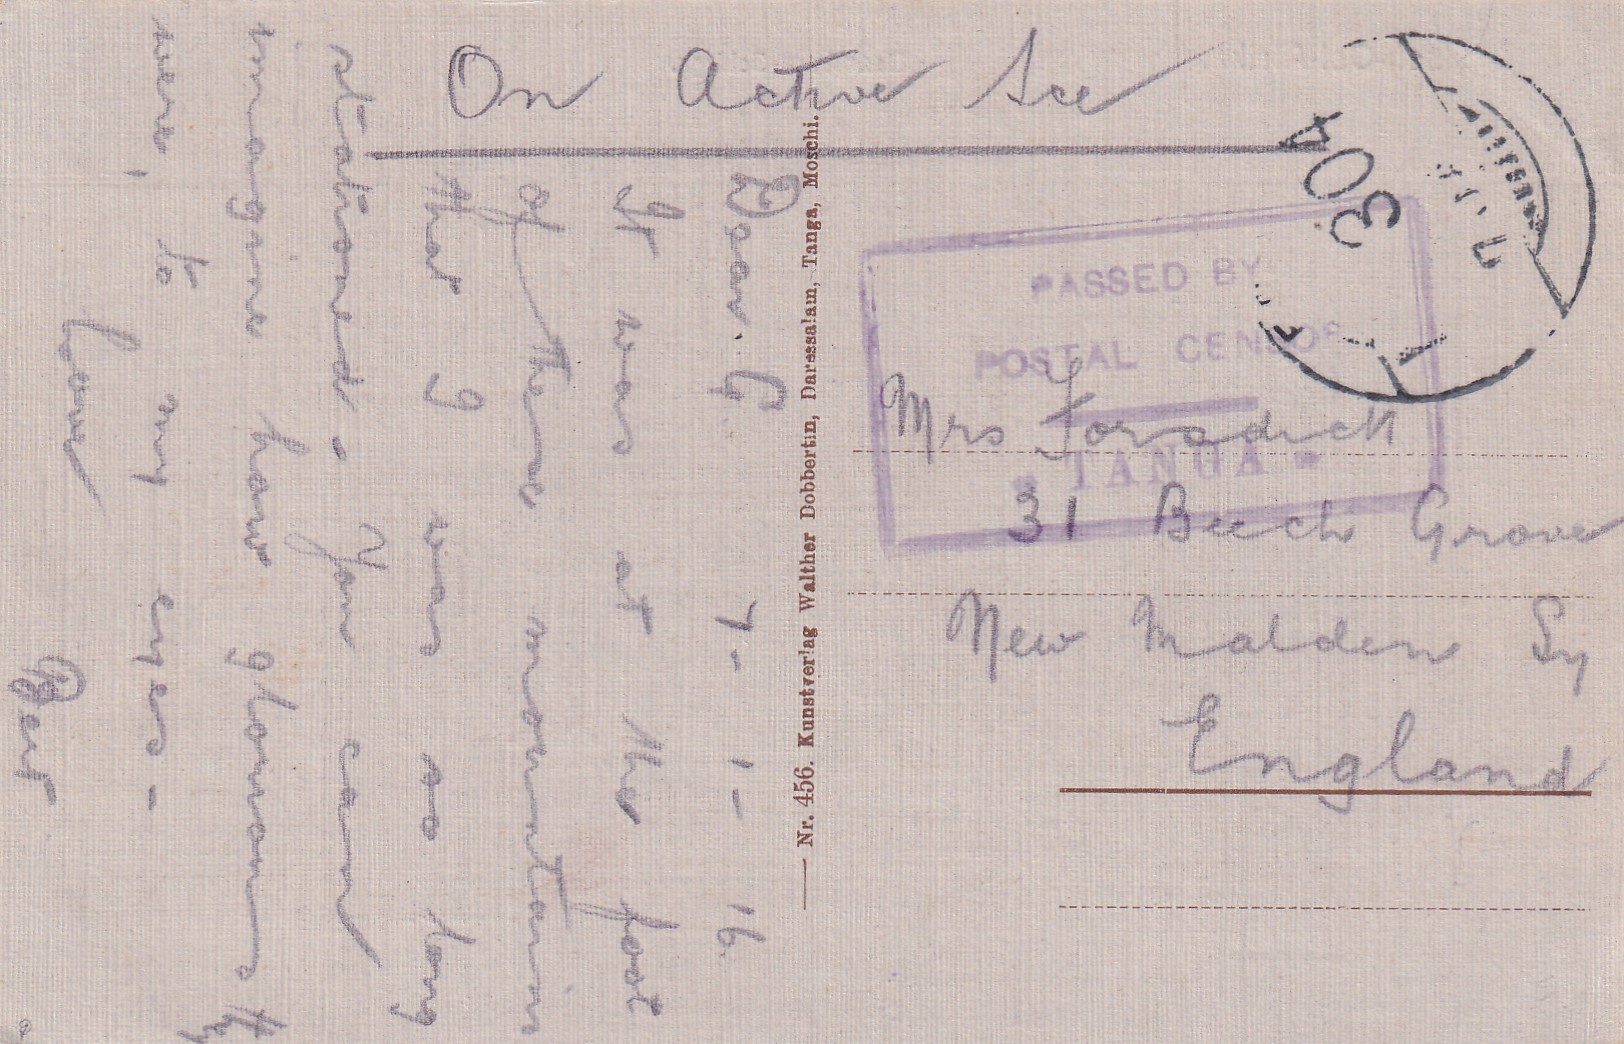 On Active Sce
Dear G. 7-1-16.
It was at the foot
of these mountains
that I was so long
stationed. You can
imagine how glorious they
were, to my eyes -
Love
Bert
Nr. 456. Kunstverlag Walther Dobbertin, Daressalam, Tanga, Moschi.
304
PASSED BY
POSTAL CENSOR
TANGA
Mrs
31 Beech Grove
New Malden Sy
England